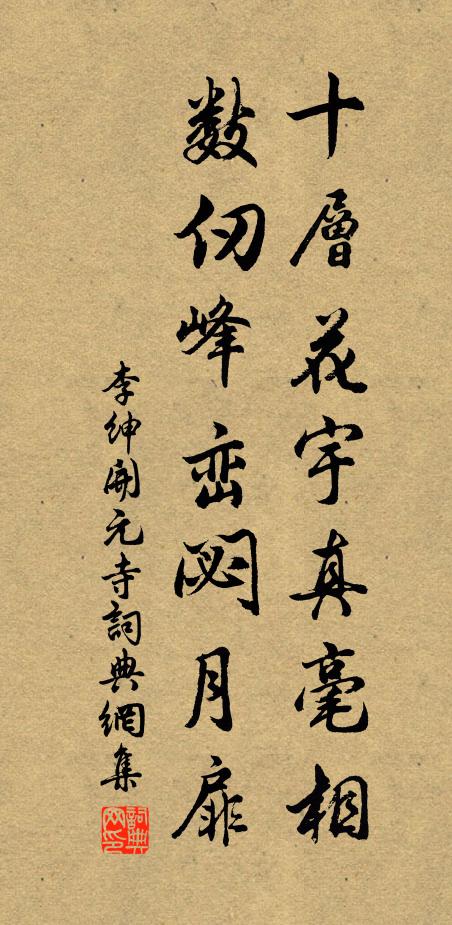 十層花宇真毫相
數仞峰巒閟月扉
李紳開元寺詞典網集
詞典
网印